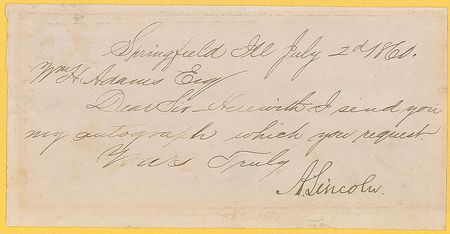 Springfield Ill July 2d 1860.
Wm H Adams Esq
Dear Sir Herewith I send you
my autograph which you request.
Yours Truly
A. Lincoln.